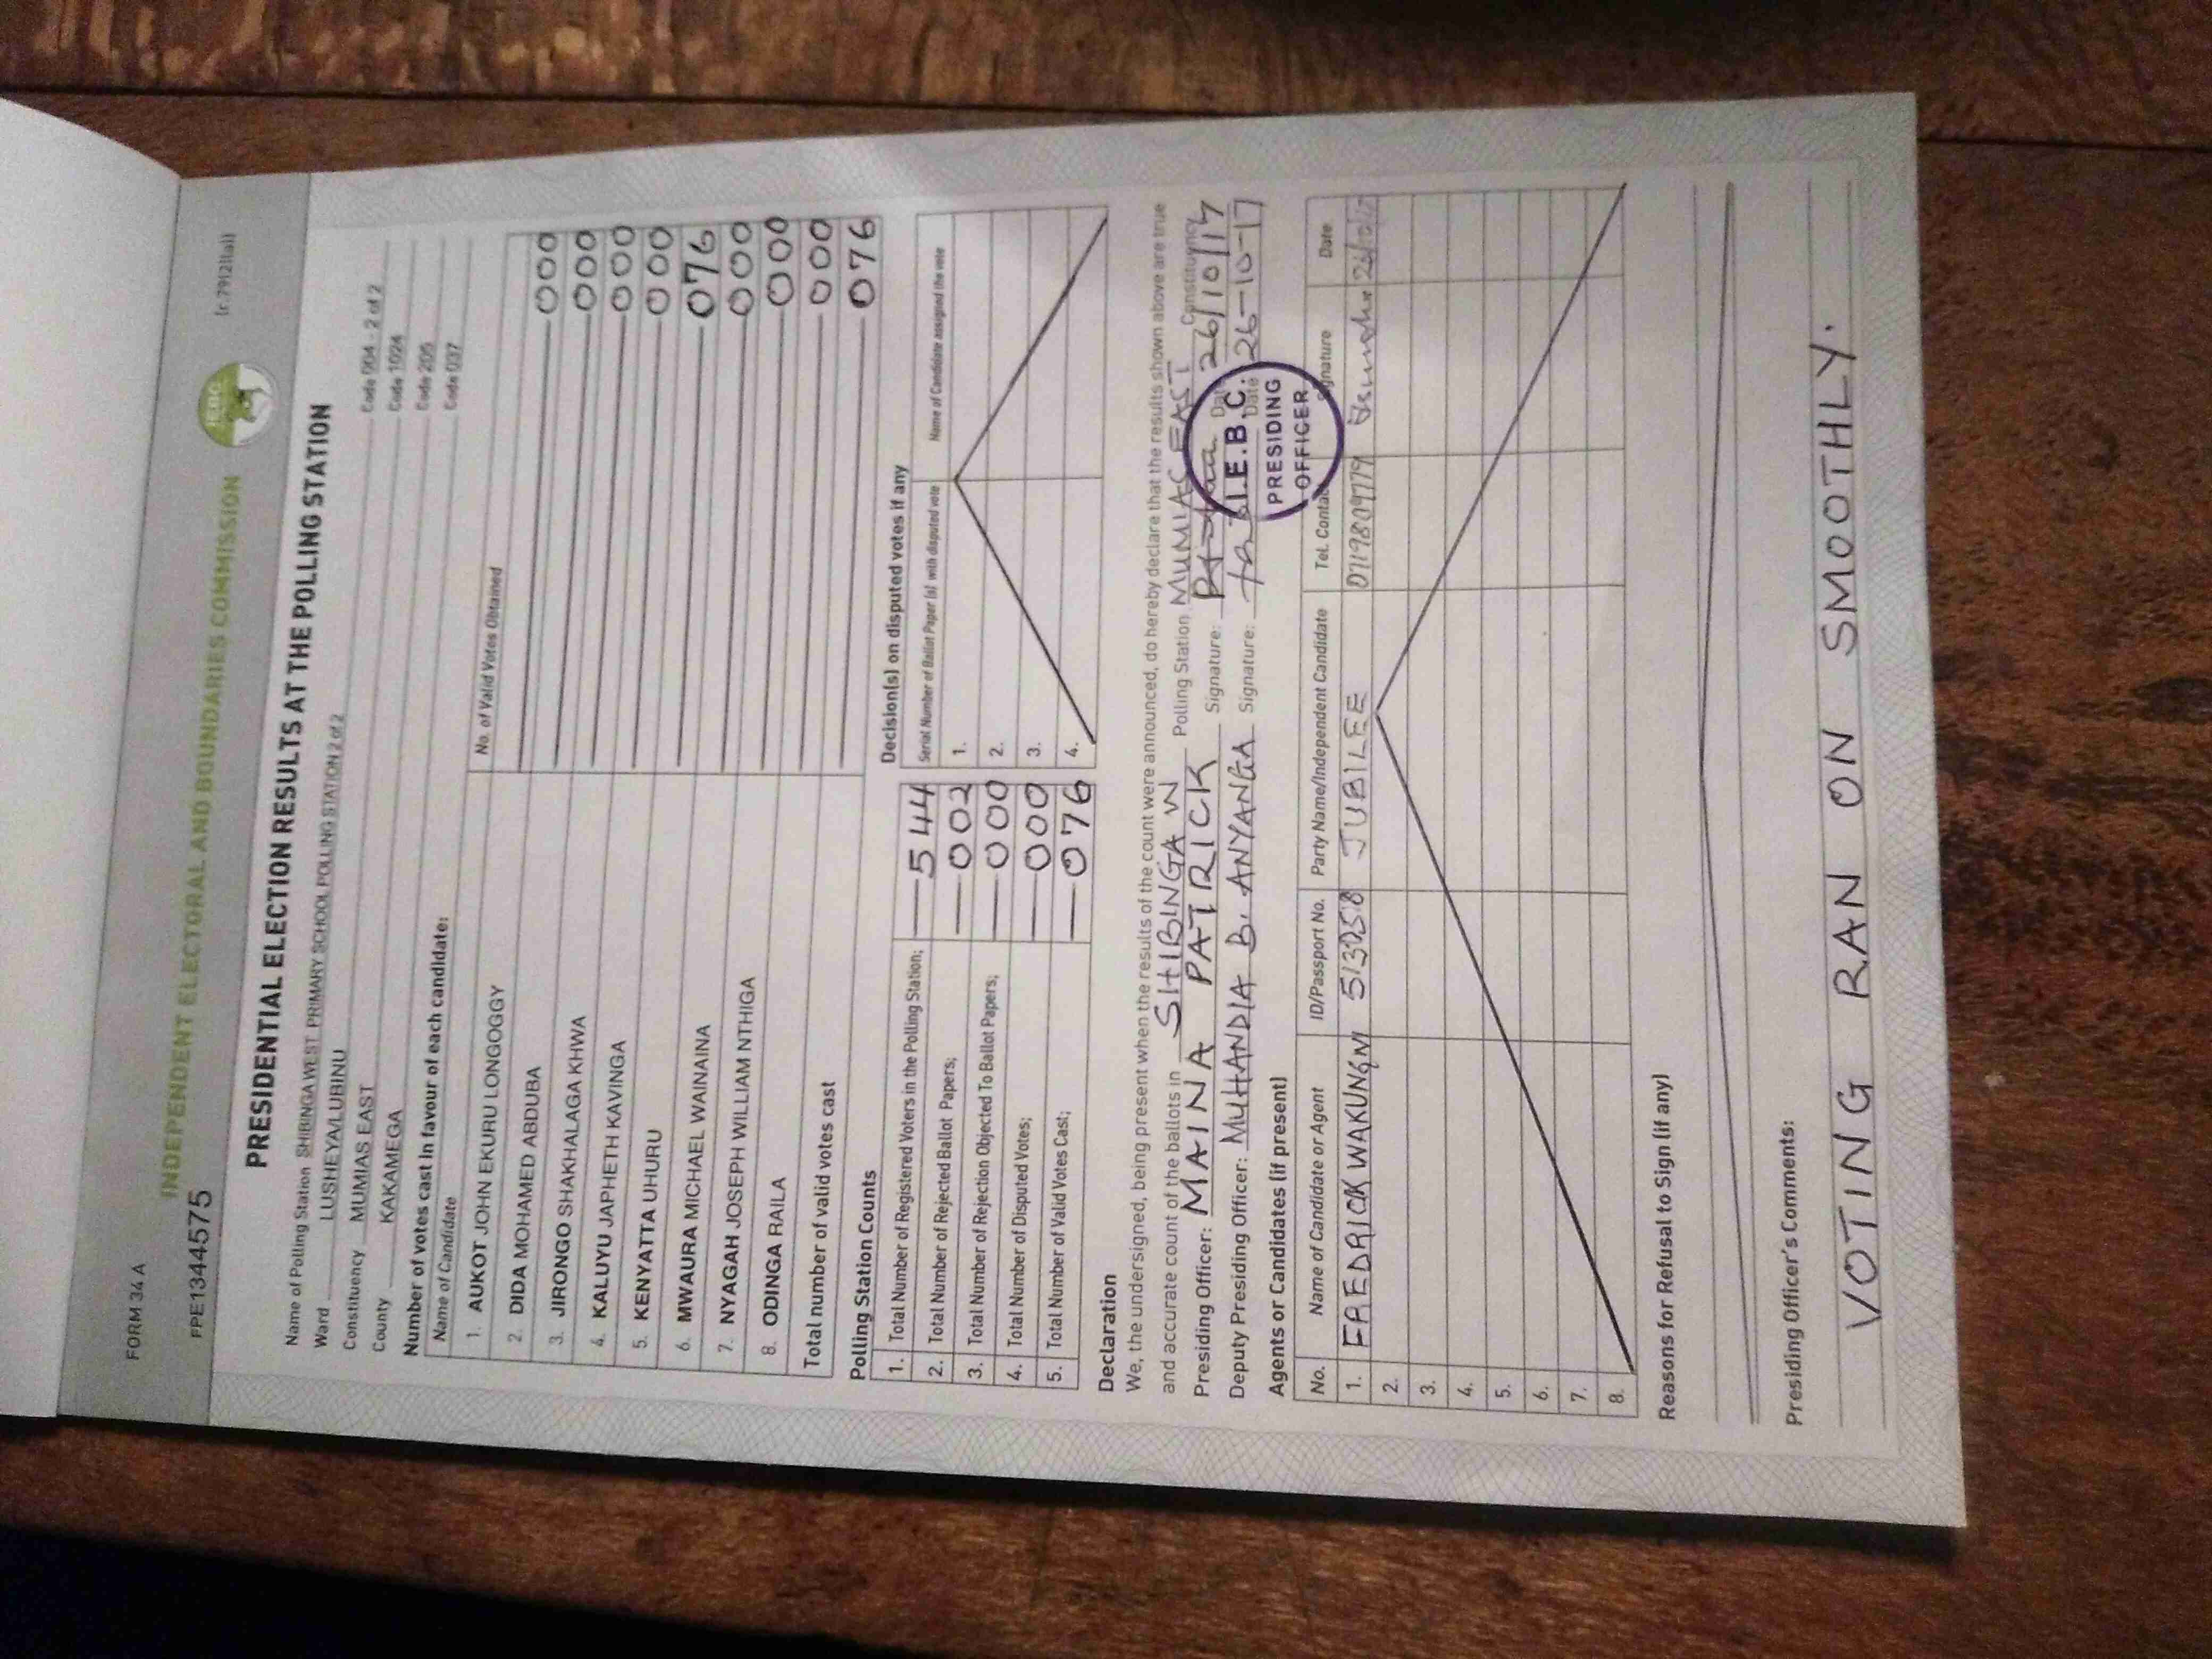 FORM 34 A
(r.79(2)(a))
INDEPENDENT ELECTORAL AND BOUNDARIES COMMISSION
IEBC
FPE1344575
PRESIDENTIAL ELECTION RESULTS AT THE POLLING STATION
Name of Polling Station SHIBINGA WEST PRIMARY SCHOOL POLLING STATION 2 of 2 Code 004 - 2 of 2
Ward LUSHEYA/LUBINU Code 1024
Constituency MUMIAS EAST Code 205
County KAKAMEGA Code 037
Number of votes cast in favour of each candidate:
Name of Candidate No. of Valid Votes Obtained
1. AUKOT JOHN EKURU LONGOGGY 000
2. DIDA MOHAMED ABDUBA 000
3. JIRONGO SHAKHALAGA KHWA 000
4. KALUYU JAPHETH KAVINGA 000
5. KENYATTA UHURU 076
6. MWAURA MICHAEL WAINAINA 000
7. NYAGAH JOSEPH WILLIAM NTHIGA 000
8. ODINGA RAILA 000
Total number of valid votes cast 076
Polling Station Counts
1. Total Number of Registered Voters in the Polling Station; 544
2. Total Number of Rejected Ballot Papers; 002
3. Total Number of Rejection Objected To Ballot Papers; 000
4. Total Number of Disputed Votes; 000
5. Total Number of Valid Votes Cast; 076
Decision(s) on disputed votes if any
Serial Number of Ballot Paper (s) with disputed vote Name of Candidate assigned the vote
1.
2.
3.
4.
Declaration
We, the undersigned, being present when the results of the count were announced, do hereby declare that the results shown above are true
and accurate count of the ballots in SHIBINGA W Polling Station MUMIAS EAST Constituency
Presiding Officer: MAINA PATRICK Signature: Date 26/10/17
Deputy Presiding Officer: MUHANDIA B. ANYANGA Signature: Date 26-10-17
I.E.B.C.
PRESIDING
OFFICER
Agents or Candidates (if present)
No. Name of Candidate or Agent ID/Passport No. Party Name/Independent Candidate Tel. Contact Signature Date
1. FREDRICK WAKUNGN JUBILEE
2.
3.
4.
5.
6.
7.
8.
Reasons for Refusal to Sign (if any)
Presiding Officer's Comments:
VOTING RAN ON SMOOTHLY.